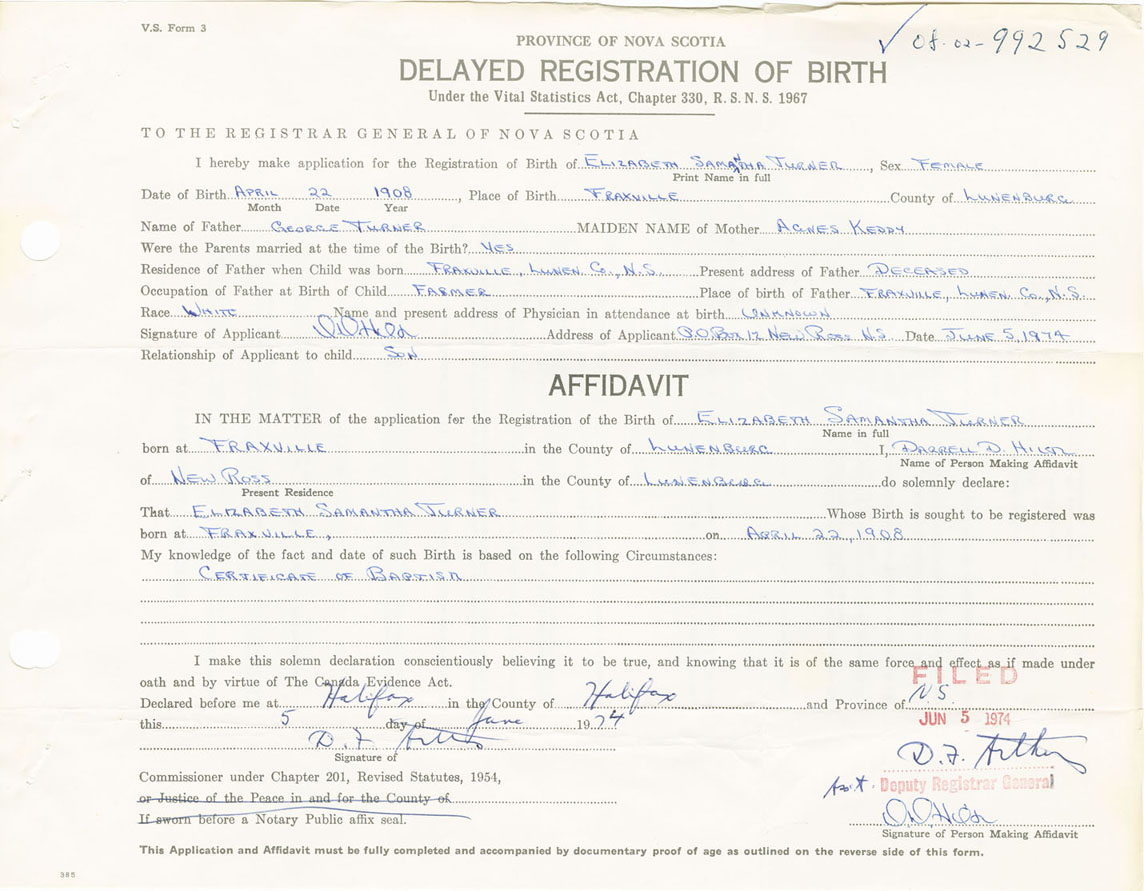 V.S. Form 3
08-02-992529
PROVINCE OF NOVA SCOTIA
DELAYED REGISTRATION OF BIRTH
Under the Vital Statistics Act, Chapter 330, R. S. N. S. 1967
TO THE REGISTRAR GENERAL OF NOVA SCOTIA
I hereby make application for the Registration of Birth of ELIZABETH SAMANTHA TURNER, Sex FEMALE
Print Name in full
Date of Birth APRIL 22 1908, Place of Birth FRAXVILLE County of LUNENBURG
Month Date Year
Name of Father GEORGE TURNER MAIDEN NAME of Mother AGNES KEDDY
Were the Parents married at the time of the Birth? YES
Residence of Father when Child was born FRAXVILLE, LUNEN. CO., N.S. Present address of Father DECEASED
Occupation of Father at Birth of Child FARMER Place of birth of Father FRAXVILLE, LUNEN CO., N.S.
Race WHITE Name and present address of Physician in attendance at birth UNKNOWN
Signature of Applicant Address of Applicant P.O. Box 12 NEW ROSS N.S. Date JUNE 5, 1974
Relationship of Applicant to child SON
AFFIDAVIT
IN THE MATTER of the application for the Registration of the Birth of ELIZABETH SAMANTHA TURNER
Name in full
born at FRAXVILLE in the County of LUNENBURG I, DARRELL D. HILTZ
Name of Person Making Affidavit
of NEW ROSS in the County of LUNENBURG do solemnly declare:
Present Residence
That ELIZABETH SAMANTHA TURNER Whose Birth is sought to be registered was
born at FRAXVILLE, on APRIL 22, 1908
My knowledge of the fact and date of such Birth is based on the following Circumstances:
CERTIFICATE OF BAPTISM
I make this solemn declaration conscientiously believing it to be true, and knowing that it is of the same force and effect as if made under
oath and by virtue of The Canada Evidence Act.
FILED
Declared before me at Halifax in the County of Halifax and Province of N.S.
this 5 day of June 1974
JUN 5 1974
D. F. Arthur
Signature of
D. F. Arthur
Commissioner under Chapter 201, Revised Statutes, 1954,
Asst. Deputy Registrar General
or Justice of the Peace in and for the County of
If sworn before a Notary Public affix seal.
Signature of Person Making Affidavit
This Application and Affidavit must be fully completed and accompanied by documentary proof of age as outlined on the reverse side of this form.
385